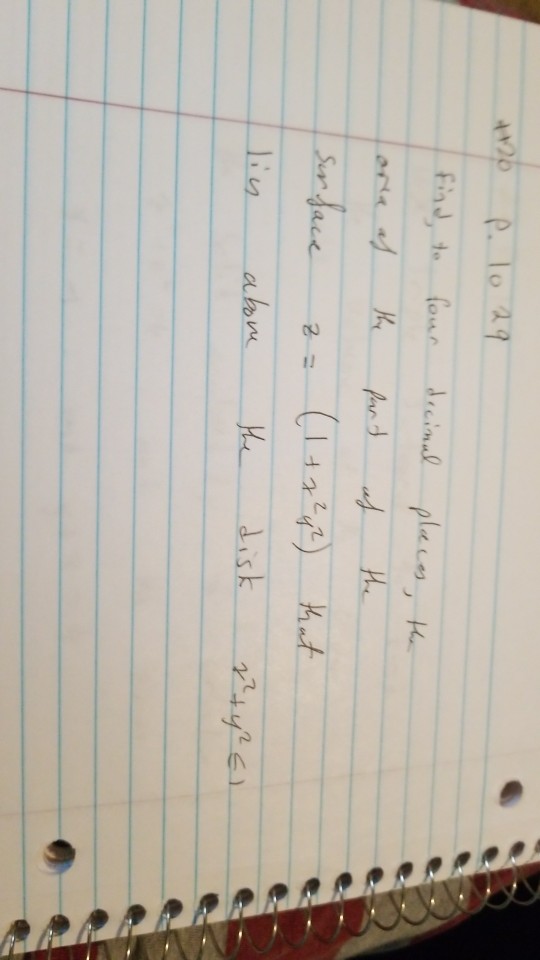 #20 p. 1029
Find, to four decimal places, the
area of the part of the
surface z = (1+x²y²) that
lies above the disk x²+y² ≤ 1